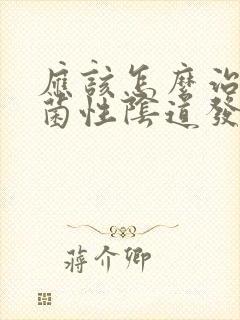 應該怎麼治
菌性陰道發
蔣介卿